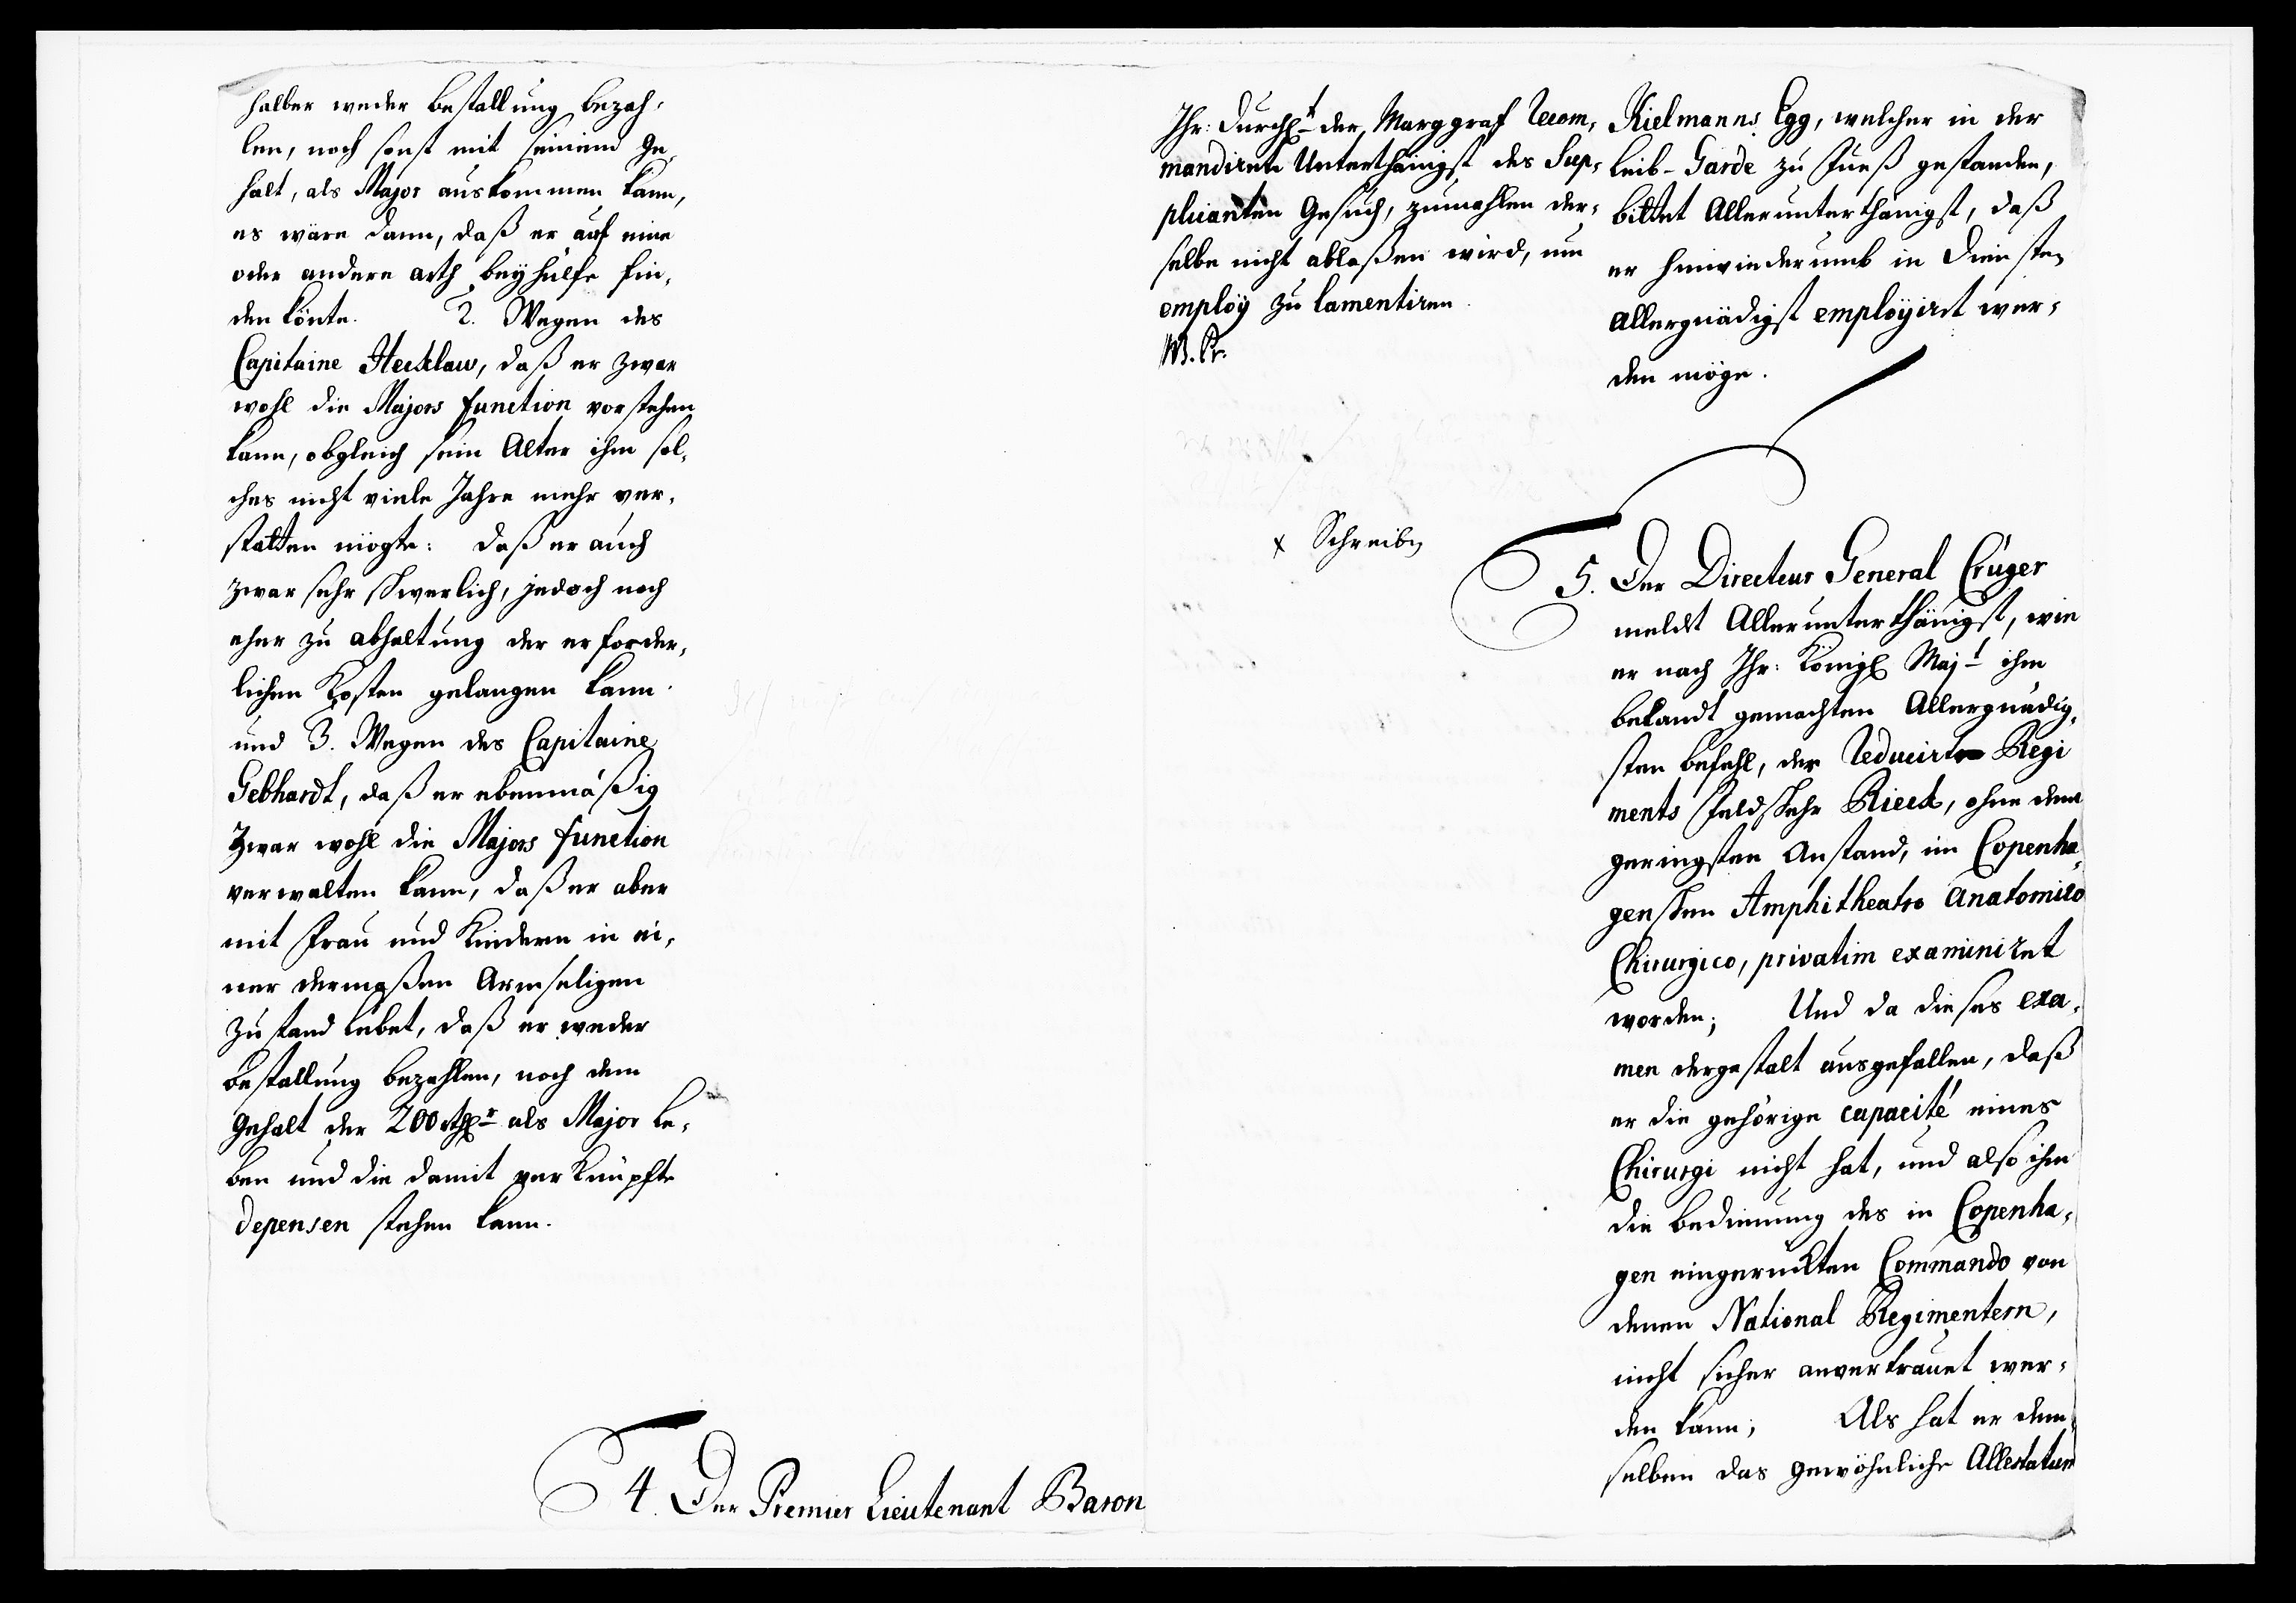 halber weder bestallung bezah,
len, noch sonst mit seinem Ge,
halt, als Major auskommen kann,
es wäre dann, daß er auf eine
oder andere arth beyhülfe fin,
den könte. 2. Wegen des
Capitaine Hecklau, daß er zwar
wohl die Majors function vorstehen
kann, obgleich sein Alter ihm sol,
ches nicht viele Jahre mehr ver,
statten mögte: daß er auch
zwar sehr schwerlich, jedoch noch
eher zu abhaltung der erforder,
lichen Kosten gelangen kann.
und 3. Wegen des Capitaine
Gebhardt, daß er ebenmäßig
zwar wohl die Majors function
verwalten kann, daß er aber
mit Frau und Kindern in ei,
ner dermaßen Armseligen
zustand lebet, daß er weder
bestallung bezahlen, noch dem
Gehalt der 200 rthlr als Major le,
ben und die damit verknüpfte
depensen stehen kann.
4. Der Premier Lieutenant Baron
Ihr: Durchlt der Marggraf recom,
mandirete Unterthänigst des Sup,
plicanten Gesuch, zumahlen der,
selbe nicht ablaßen wird, um
employ zu lamentiren.
W. Pr.
Kielmanns Egg, welcher in der
Leib-Garde zu Fueß gestanden,
bittet Allerunterthänigst, daß
er hinwiederumb in Diensten
Allergnädigst employirt wer,
den möge.
x Schreiben
5. Der Directeur General Crüger
meldet Allerunterthänigst, wie
er nach Ihr: Königl Majt ihm
bekandt gemachten Allergnädig,
sten befehl, der reducirte Regi
ments Feldscher Rieck, ohne dem
geringsten Anstand, im Copenha,
genschen Amphitheatro Anatomico
Chirurgico, privatim examiniret
worden; Und da dieses exa,
men dergestalt ausgefallen, daß
er die gehörige capacité eines
Chirurgi nicht hat, und also ihm
die bedienung des in Copenha,
gen eingerückten Commando von
denen National Regimentern,
nicht sicher anvertrauet wer,
den kann; Als hat er dem,
selben das gewöhnliche Attestatum